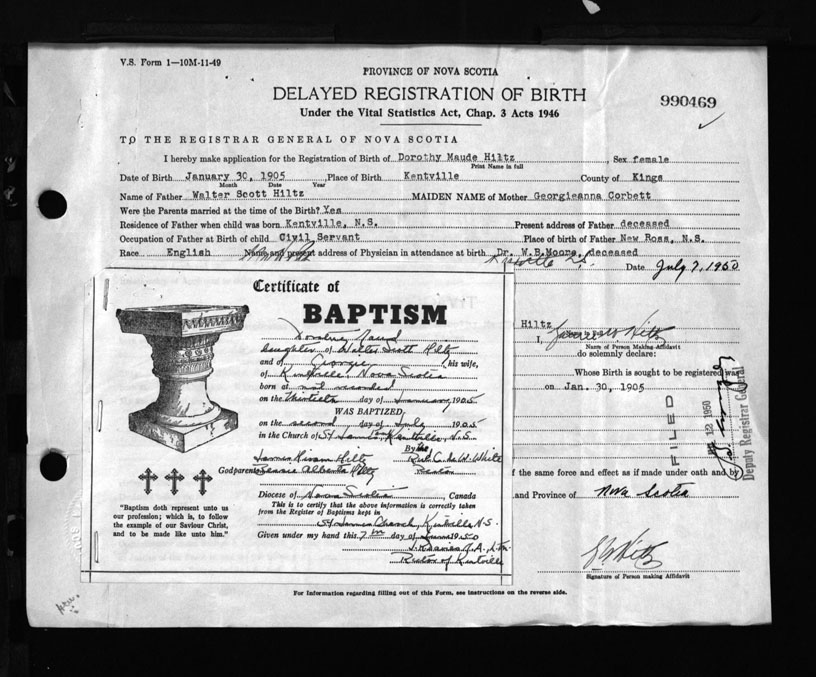 V.S. Form 1—10M-11-49
PROVINCE OF NOVA SCOTIA
DELAYED REGISTRATION OF BIRTH
990469
Under the Vital Statistics Act, Chap. 3 Acts 1946
TO THE REGISTRAR GENERAL OF NOVA SCOTIA
I hereby make application for the Registration of Birth of Dorothy Maude Hiltz Sex female
Print Name in full
Date of Birth January 30, 1905 Place of Birth Kentville County of Kings
Month Date Year
Name of Father Walter Scott Hiltz MAIDEN NAME of Mother Georgieanna Corbett
Were the Parents married at the time of the Birth? Yes
Residence of Father when child was born Kentville, N.S. Present address of Father deceased
Occupation of Father at Birth of child Civil Servant Place of birth of Father New Ross, N.S.
Race English Name and present address of Physician in attendance at birth Dr. W.B.Moore, deceased
Kentville N.S.
Date July 7, 1950
Certificate of
BAPTISM
Dorothy Maud
daughter of Walter Scott Hiltz
and of Georgie, his wife,
of Kentville, Nova Scotia
born at not recorded
on the thirtieth day of January, 1905
WAS BAPTIZED
on the second day of July 1905
in the Church of St James, Kentville, N.S.
By the
James Hiram Hiltz Rev. C. de W. White
Godparents Jessie Alberta Hiltz Rector
Diocese of Nova Scotia, Canada
This is to certify that the above information is correctly taken
from the Register of Baptisms kept in
St James Church, Kentville N.S.
Given under my hand this 7th day of 1950
Rector of Kentville
"Baptism doth represent unto us
our profession; which is, to follow
the example of our Saviour Christ,
and to be made like unto him."
Hiltz
I, Hiltz
Name of Person Making Affidavit
do solemnly declare:
Whose Birth is sought to be registered was
on Jan. 30, 1905
FILED
12 1950
Deputy Registrar General
f the same force and effect as if made under oath and by
and Province of Nova Scotia
Hiltz
Signature of Person making Affidavit
For Information regarding filling out of this Form, see instructions on the reverse side.